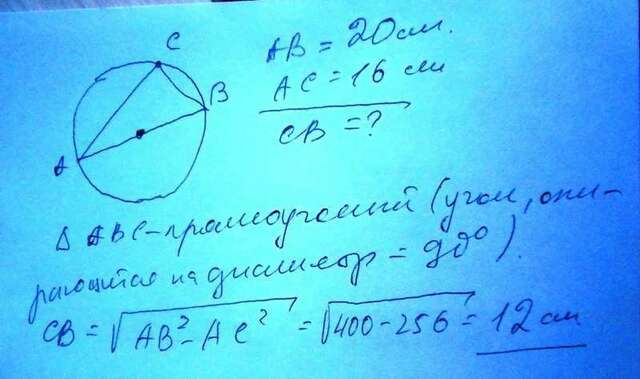 C
B
A
AB = 20 см.
AC = 16 см
CB = ?
Δ ABC - прямоугольный (угол, опи-
рающийся на диаметр = 90°).
CB = √AB² - AC² = √400 - 256 = 12 см